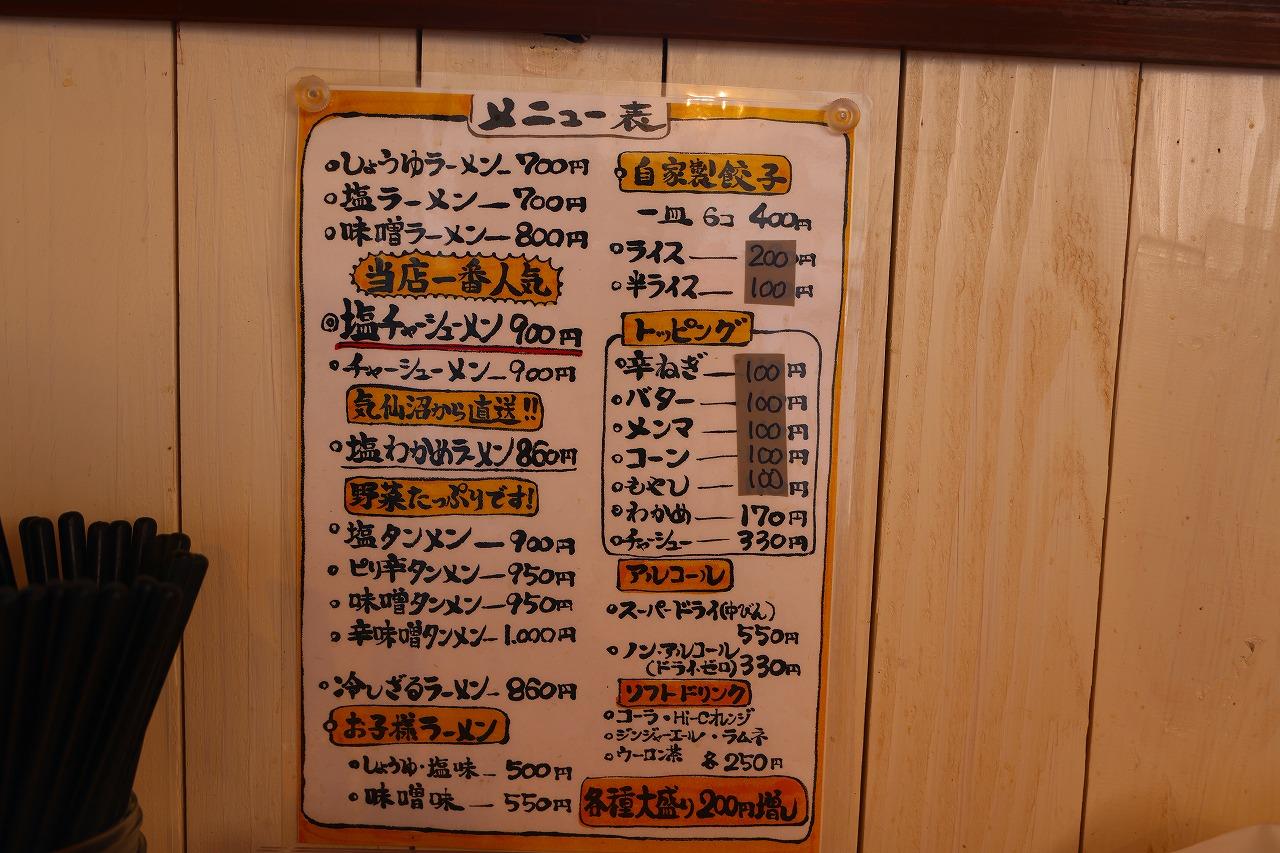 メニュー表
しょうゆラーメン 700円
塩ラーメン 700円
味噌ラーメン 800円
当店一番人気
塩チャーシューメン 900円
チャーシューメン 900円
気仙沼から直送!!
塩わかめラーメン 860円
野菜たっぷりです!
塩タンメン 900円
ピリ辛タンメン 950円
味噌タンメン 950円
辛味噌タンメン 1.000円
冷しざるラーメン 860円
お子様ラーメン
しょうゆ・塩味 500円
味噌味 550円
自家製餃子
一皿 6コ 400円
ライス 200円
半ライス 100円
トッピング
辛ねぎ 100円
バター 100円
メンマ 100円
コーン 100円
もやし 100円
わかめ 170円
チャーシュー 330円
アルコール
スーパードライ(中びん)
550円
ノンアルコール
(ドライゼロ) 330円
ソフトドリンク
コーラ・Hi-Cオレンジ
ジンジャーエール・ラムネ
ウーロン茶 各250円
各種大盛り200円増し